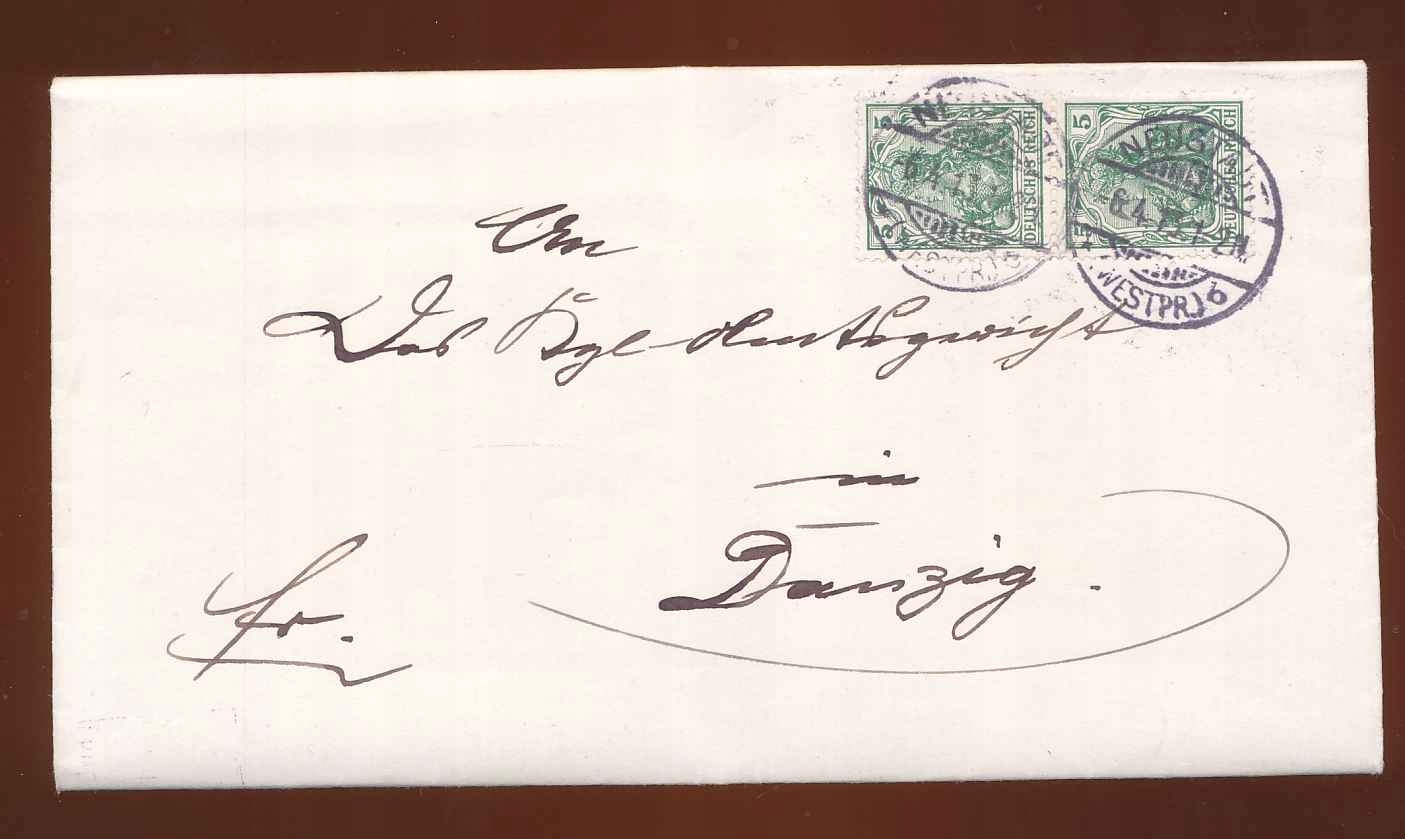 5 DEUTSCHES REICH 5
5 DEUTSCHES REICH 5
NEUST
6.4.13.1-2N.
(WESTPR.) b
An
Das Kgl. Amtsgericht
in
Danzig.
Fr.